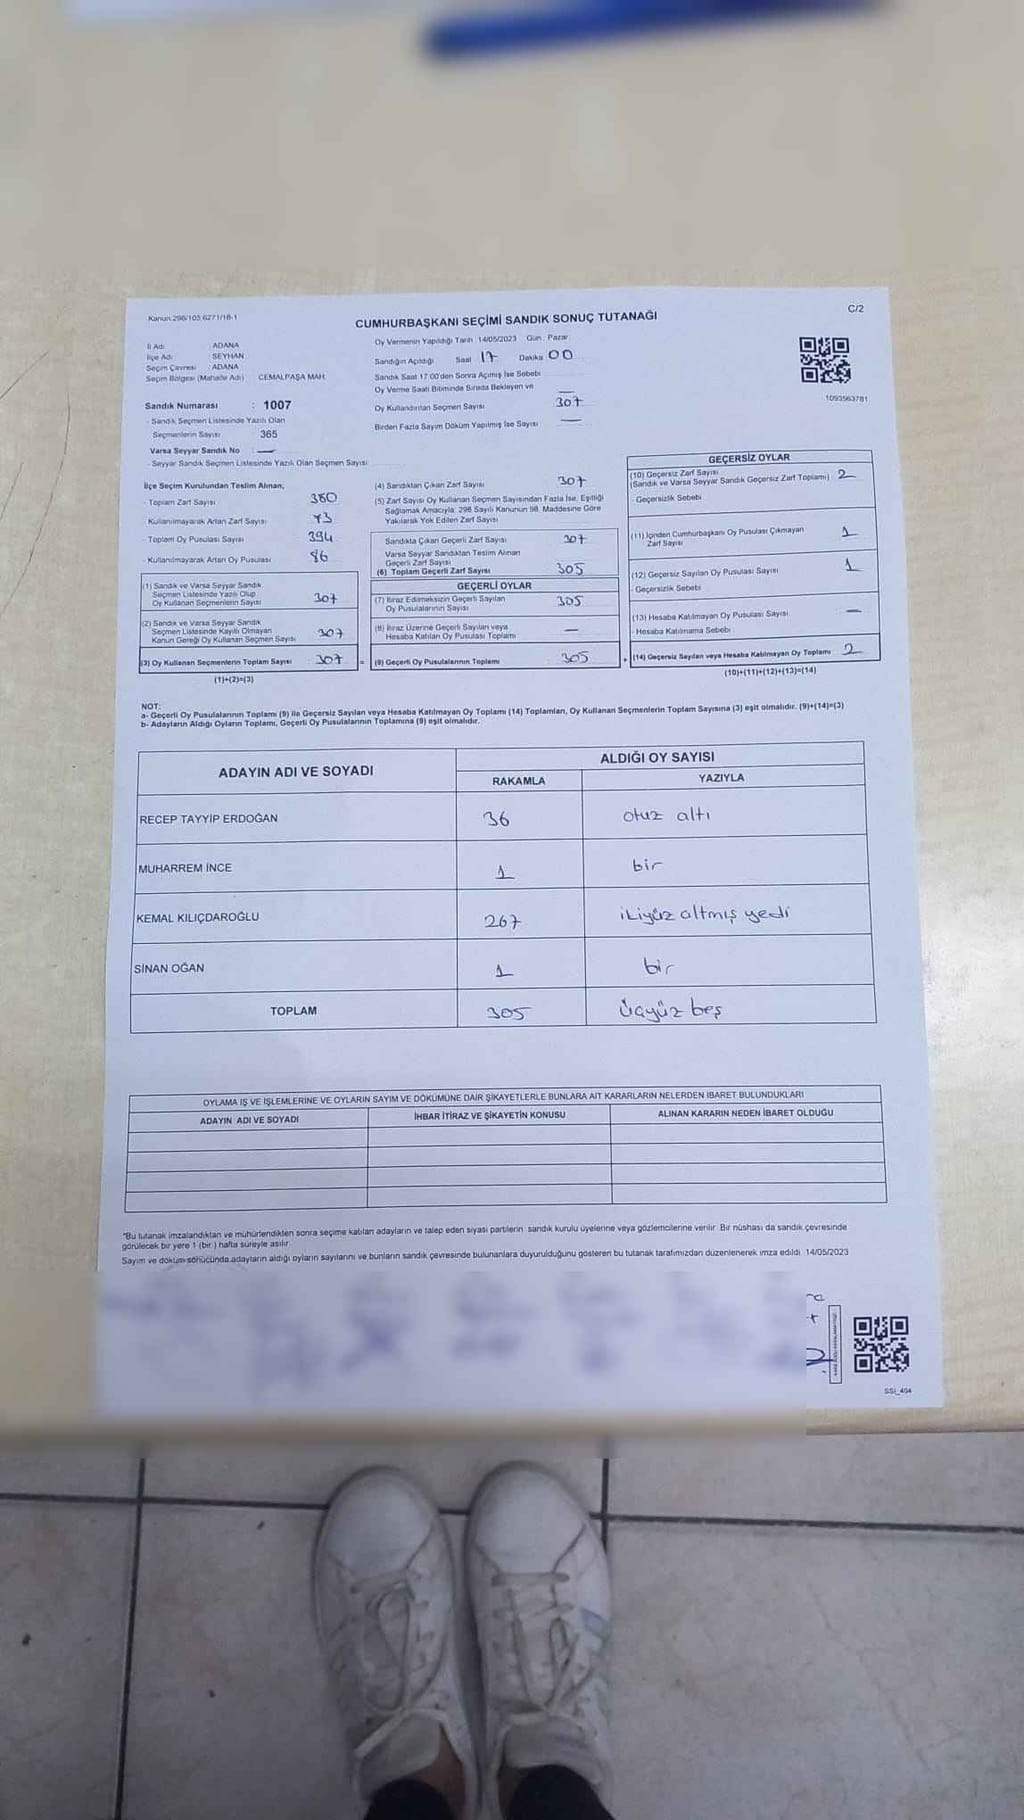 Kanun:298/105.6271/18-1
C/2
CUMHURBAŞKANI SEÇİMİ SANDIK SONUÇ TUTANAĞI
İl Adı ADANA
İlçe Adı SEYHAN
Seçim Çevresi : ADANA
Seçim Bölgesi (Mahalle Adı) CEMALPAŞA MAH.
Sandık Numarası : 1007
- Sandık Seçmen Listesinde Yazılı Olan
Seçmenlerin Sayısı 365
Varsa Seyyar Sandık No : —
- Seyyar Sandık Seçmen Listesinde Yazılı Olan Seçmen Sayısı
Oy Vermenin Yapıldığı Tarih 14/05/2023 Gün : Pazar
Sandığın Açıldığı Saat 17 Dakika 00
Sandık Saat 17:00'den Sonra Açılmış İse Sebebi
Oy Verme Saati Bitiminde Sırada Bekleyen ve —
Oy Kullandırılan Seçmen Sayısı 307
Birden Fazla Sayım Döküm Yapılmış İse Sayısı —
1093563781
İlçe Seçim Kurulundan Teslim Alınan;
- Toplam Zarf Sayısı 380
- Kullanılmayarak Artan Zarf Sayısı 73
- Toplam Oy Pusulası Sayısı 394
- Kullanılmayarak Artan Oy Pusulası 86
(1) Sandık ve Varsa Seyyar Sandık
Seçmen Listesinde Yazılı Olup
Oy Kullanan Seçmenlerin Sayısı 307
(2) Sandık ve Varsa Seyyar Sandık
Seçmen Listesinde Kayıtlı Olmayan
Kanun Gereği Oy Kullanan Seçmen Sayısı 307
(3) Oy Kullanan Seçmenlerin Toplam Sayısı 307
(1)+(2)=(3)
(4) Sandıktan Çıkan Zarf Sayısı 307
(5) Zarf Sayısı Oy Kullanan Seçmen Sayısından Fazla İse, Eşitliği
Sağlamak Amacıyla, 298 Sayılı Kanunun 98. Maddesine Göre
Yakılarak Yok Edilen Zarf Sayısı
Sandıkta Çıkan Geçerli Zarf Sayısı 307
Varsa Seyyar Sandıktan Teslim Alınan
Geçerli Zarf Sayısı
(6) Toplam Geçerli Zarf Sayısı 305
GEÇERLİ OYLAR
(7) İtiraz Edilmeksizin Geçerli Sayılan
Oy Pusulalarının Sayısı 305
(8) İtiraz Üzerine Geçerli Sayılan veya
Hesaba Katılan Oy Pusulası Toplamı —
(9) Geçerli Oy Pusulalarının Toplamı 305
GEÇERSİZ OYLAR
(10) Geçersiz Zarf Sayısı
(Sandık ve Varsa Seyyar Sandık Geçersiz Zarf Toplamı) 2
- Geçersizlik Sebebi
(11) İçinden Cumhurbaşkanı Oy Pusulası Çıkmayan
Zarf Sayısı 1
(12) Geçersiz Sayılan Oy Pusulası Sayısı 1
- Geçersizlik Sebebi
(13) Hesaba Katılmayan Oy Pusulası Sayısı —
- Hesaba Katılmama Sebebi
(14) Geçersiz Sayılan veya Hesaba Katılmayan Oy Toplamı 2
(10)+(11)+(12)+(13)=(14)
NOT:
a- Geçerli Oy Pusulalarının Toplamı (9) ile Geçersiz Sayılan veya Hesaba Katılmayan Oy Toplamı (14) Toplamları, Oy Kullanan Seçmenlerin Toplam Sayısına (3) eşit olmalıdır. (9)+(14)=(3)
b- Adayların Aldığı Oyların Toplamı, Geçerli Oy Pusulalarının Toplamına (9) eşit olmalıdır.
ADAYIN ADI VE SOYADI
ALDIĞI OY SAYISI
RAKAMLA YAZIYLA
RECEP TAYYİP ERDOĞAN 36 otuz altı
MUHARREM İNCE 1 bir
KEMAL KILIÇDAROĞLU 267 ikiyüz altmış yedi
SİNAN OĞAN 1 bir
TOPLAM 305 üçyüz beş
OYLAMA İŞ VE İŞLEMLERİNE VE OYLARIN SAYIM VE DÖKÜMÜNE DAİR ŞİKAYETLERLE BUNLARA AİT KARARLARIN NELERDEN İBARET BULUNDUKLARI
ADAYIN ADI VE SOYADI İHBAR İTİRAZ VE ŞİKAYETİN KONUSU ALINAN KARARIN NEDEN İBARET OLDUĞU
*Bu tutanak imzalandıktan ve mühürlendikten sonra seçime katılan adayların ve talep eden siyasi partilerin sandık kurulu üyelerine veya gözlemcilerine verilir. Bir nüshası da sandık çevresinde
görülecek bir yere 1 (bir) hafta süreyle asılır.
Sayım ve döküm sonucunda adayların aldığı oyların sayılarını ve bunların sandık çevresinde bulunanlara duyurulduğunu gösteren bu tutanak tarafımızdan düzenlenerek imza edildi. 14/05/2023
SSİ_404